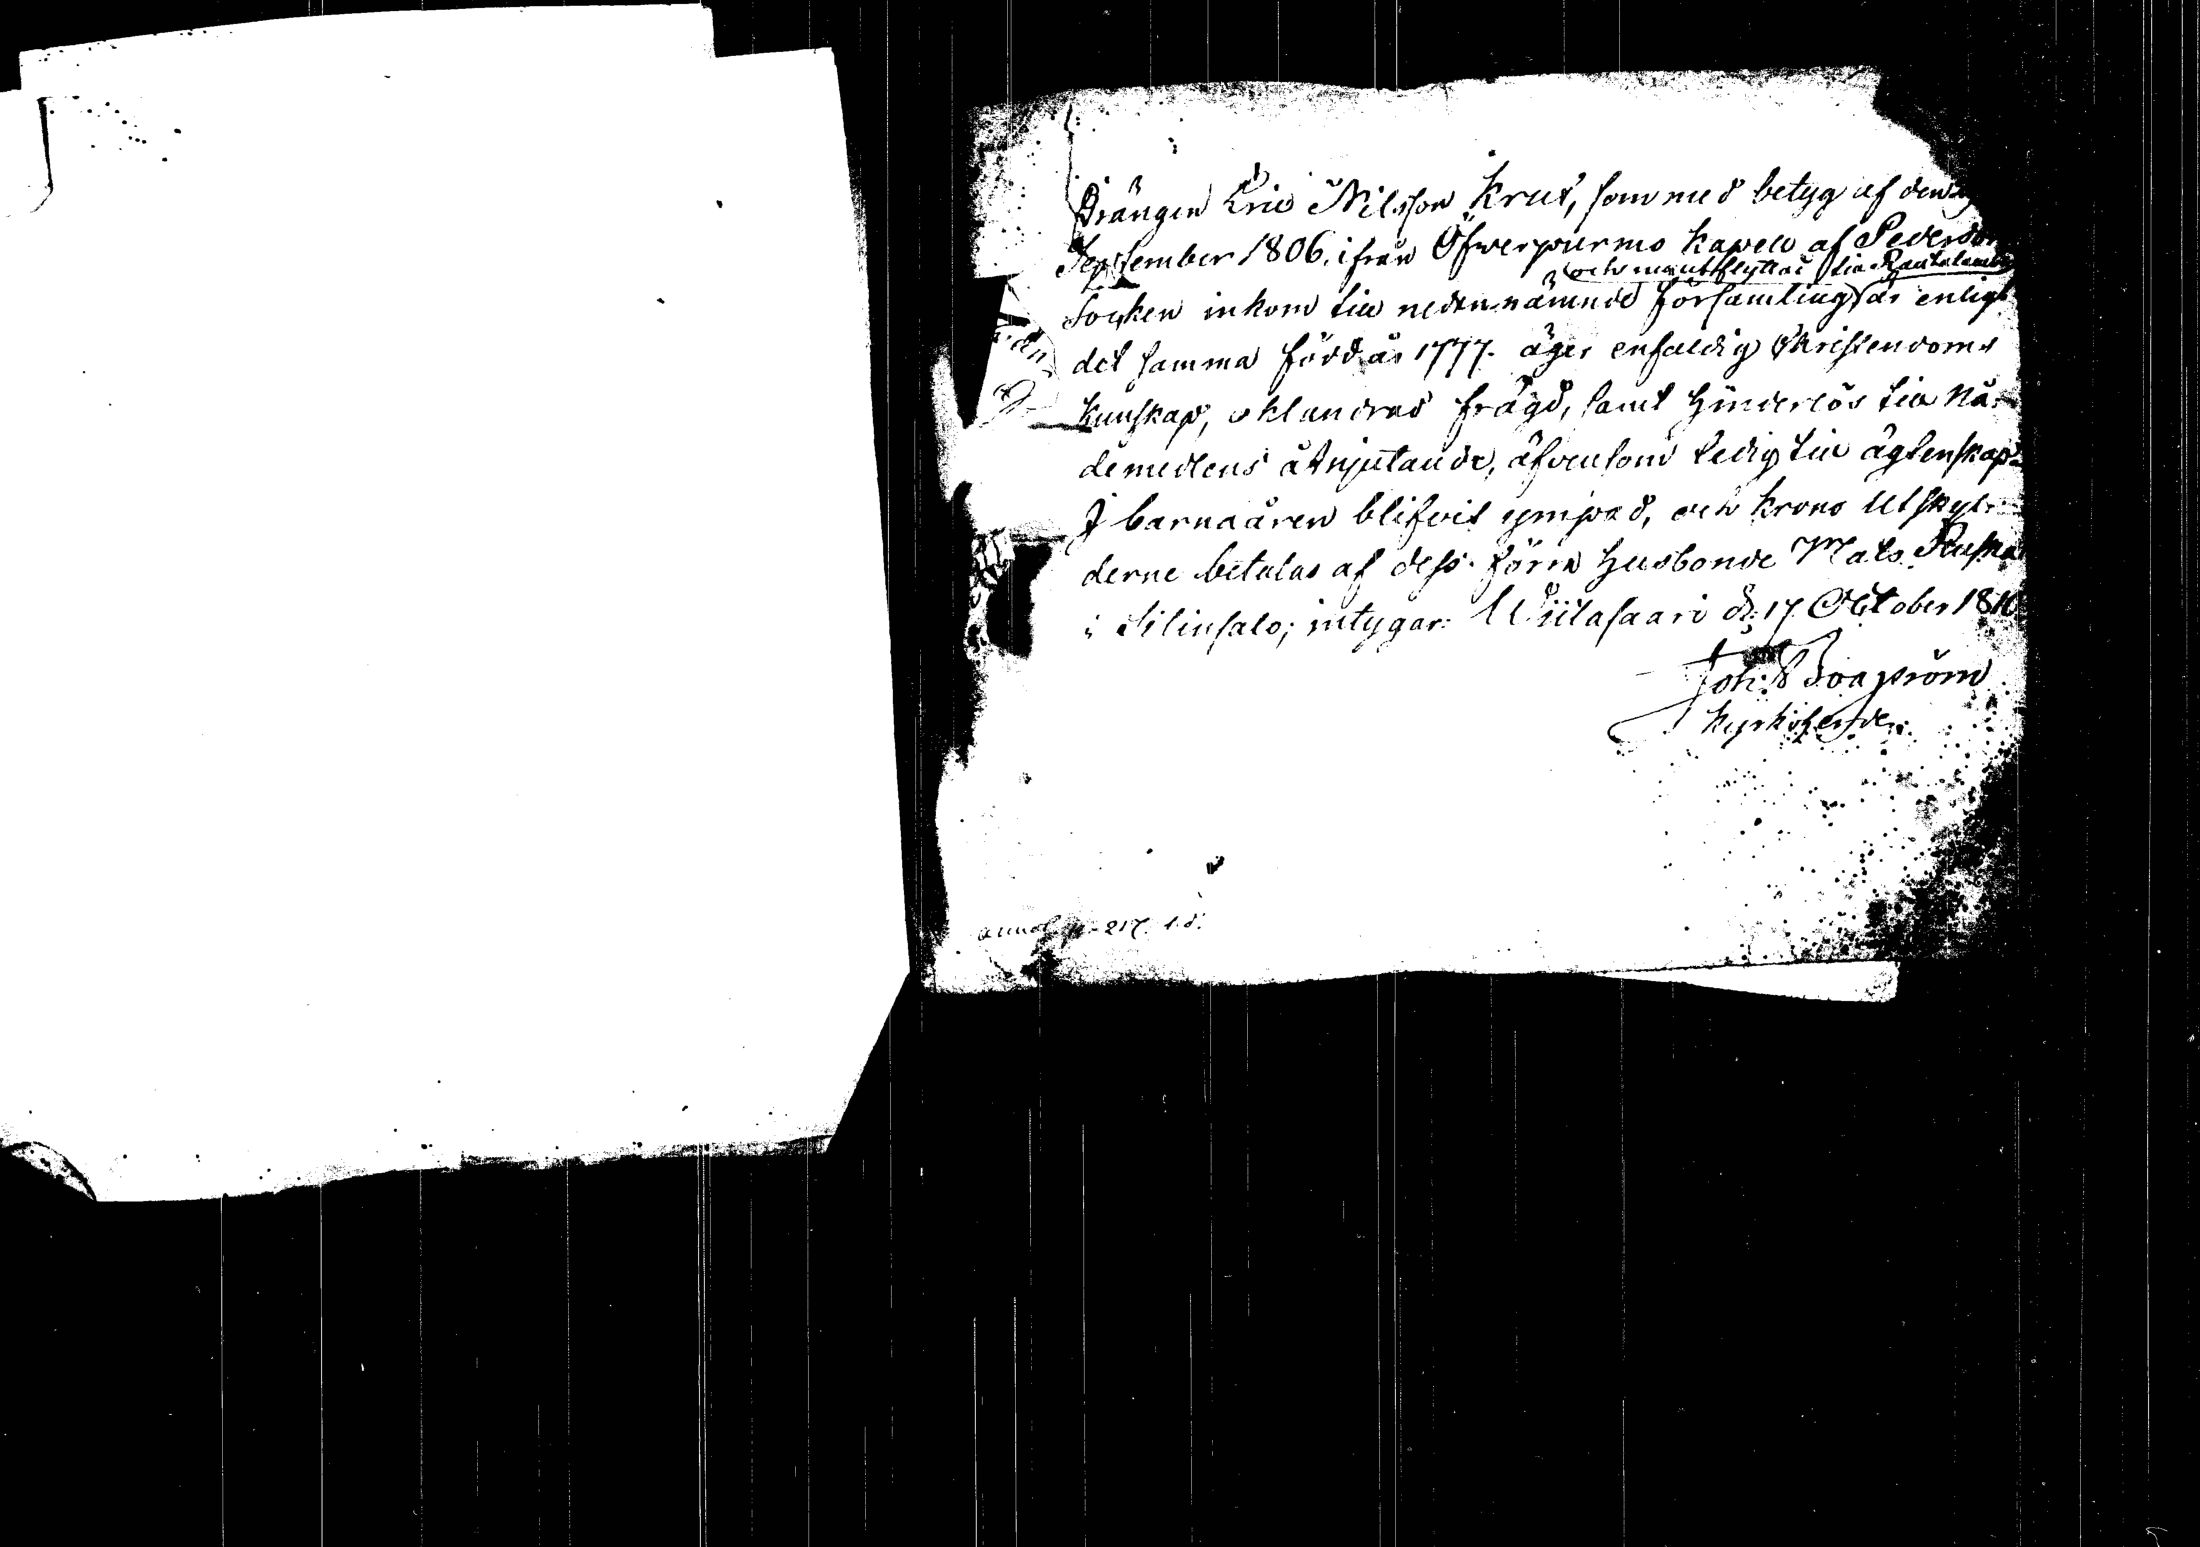 Drängen Eric Nilsson Krut, som med betyg af den
September 1806. ifrån Öfwerpurmo kapell af Pedersör
och nu utflyttar till Rautalambi
Socken inkom till nedannämnde församling, är enligt
det samma född år 1777. äger enfaldig Christendoms
kunskap, oklandrad frägd, samt hinderlös till Nå-
demedlens åtnjutande, äfvensom ledig till ägtenskap.
I barnaåren blifvit ympad, och krono Utskyl-
derne betalas af dess förra Husbonde Mats
i Silinsalo; intygar: Wiitasaari d: 17 October 1810
Joh:
kyrkoherde.
annot. p. 217. s.d.